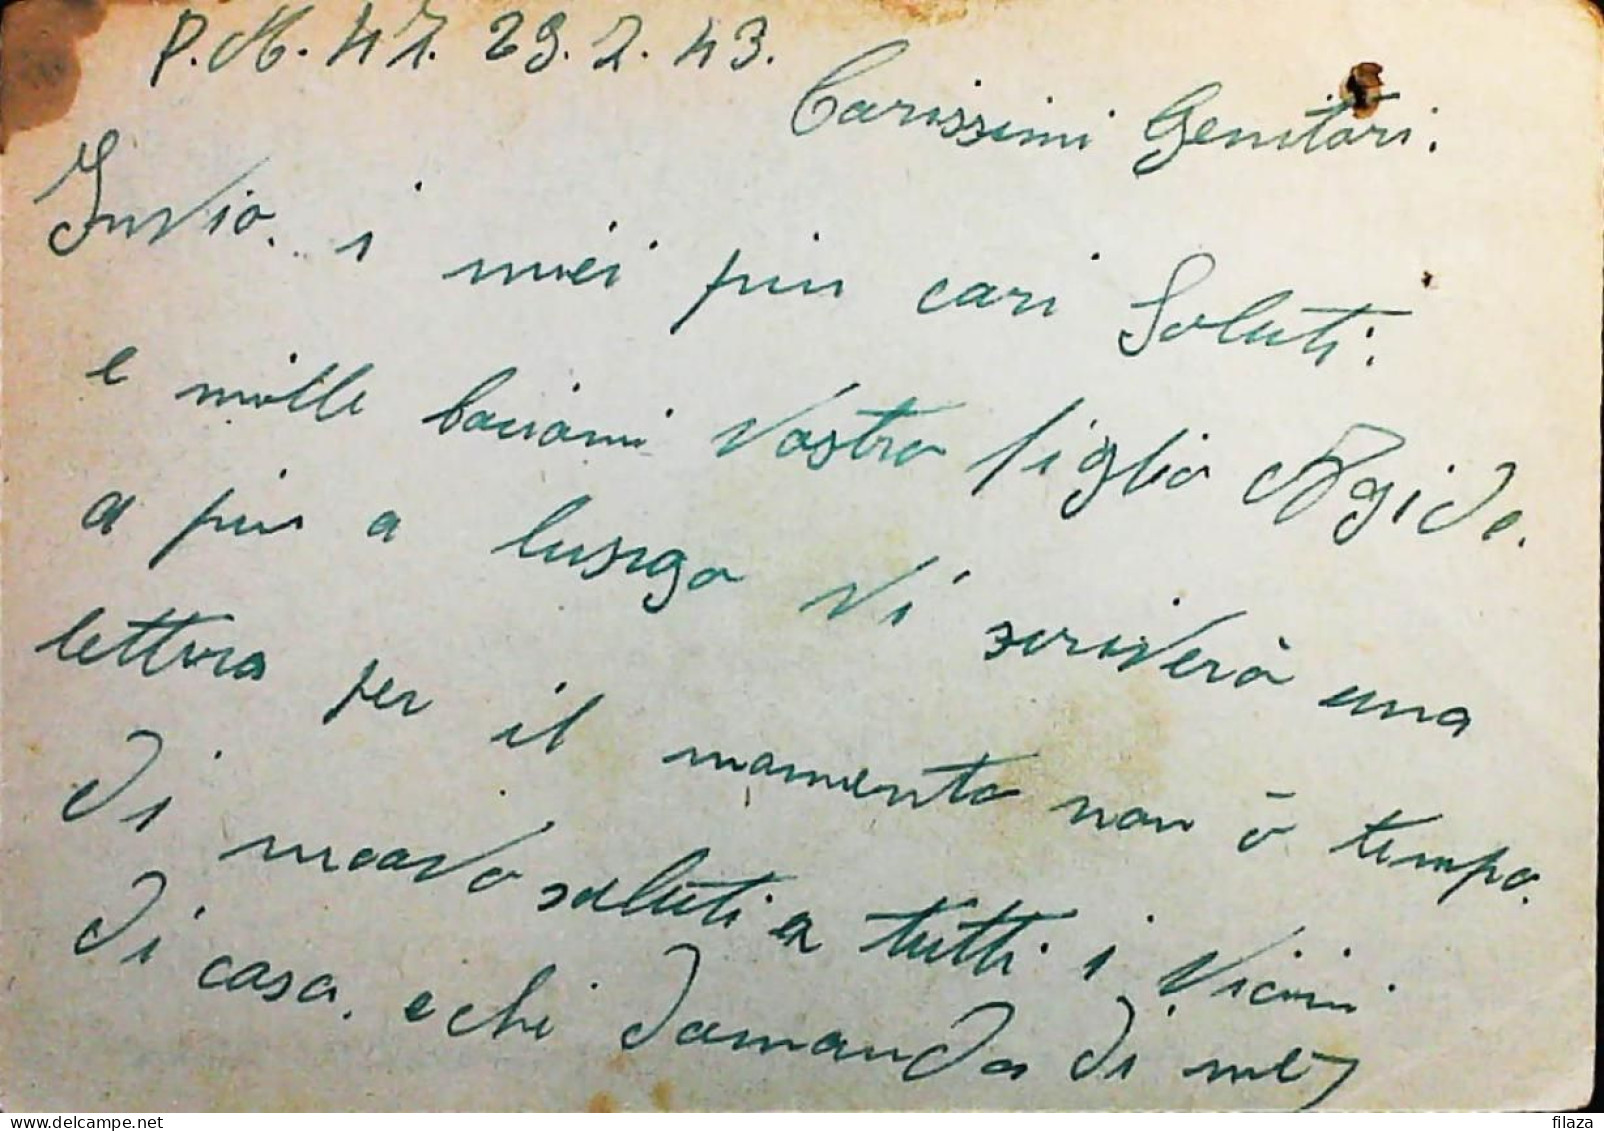 P.M. 47. 29.7.43.
Carissimi Genitori.
Invio. i miei piu cari Saluti.
e mille baciami vostro figlio Agide.
a piu a lungo vi scriverò una
lettera per il momento non ò tempo.
di nuovo saluti a tutti i vicini
di casa. e chi domanda di me
filaza